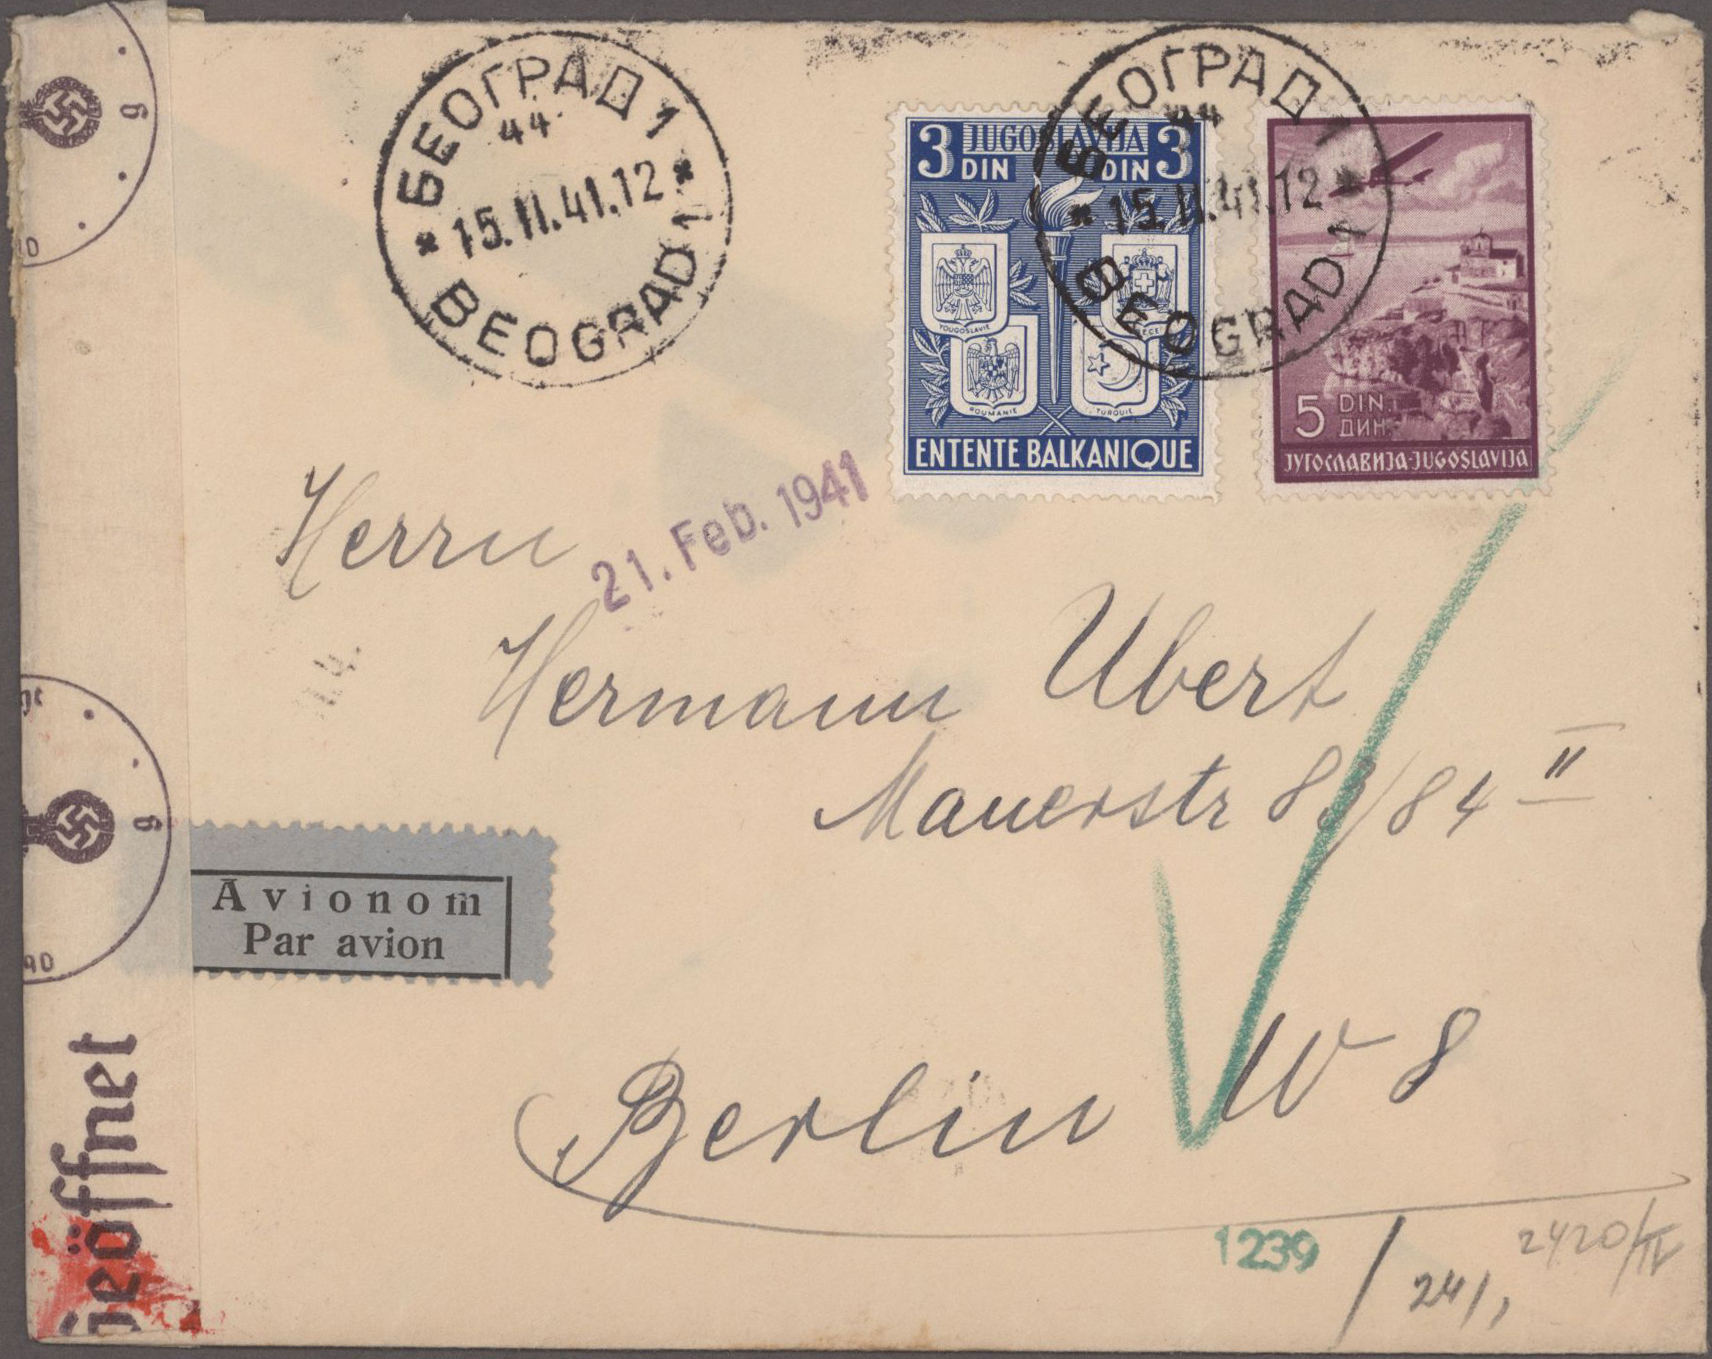 БЕОГРАД 1
44
15.II.41.12
BEOGRAD 1
БЕОГРАД 1
44
15.II.41.12
BEOGRAD 1
3 JUGOSLAVIJA 3
DIN DIN
YOUGOSLAVIE
ROUMANIE
TURQUIE
ENTENTE BALKANIQUE
5 DIN.
ДИН.
ЈУГОСЛАВИЈА-JUGOSLAVIJA
21. Feb. 1941
Herrn
Hermann Ubert
Mauerstr 83/84 II
Avionom
Par avion
Berlin W 8
1239
241,
2420/IV
g
g
geöffnet